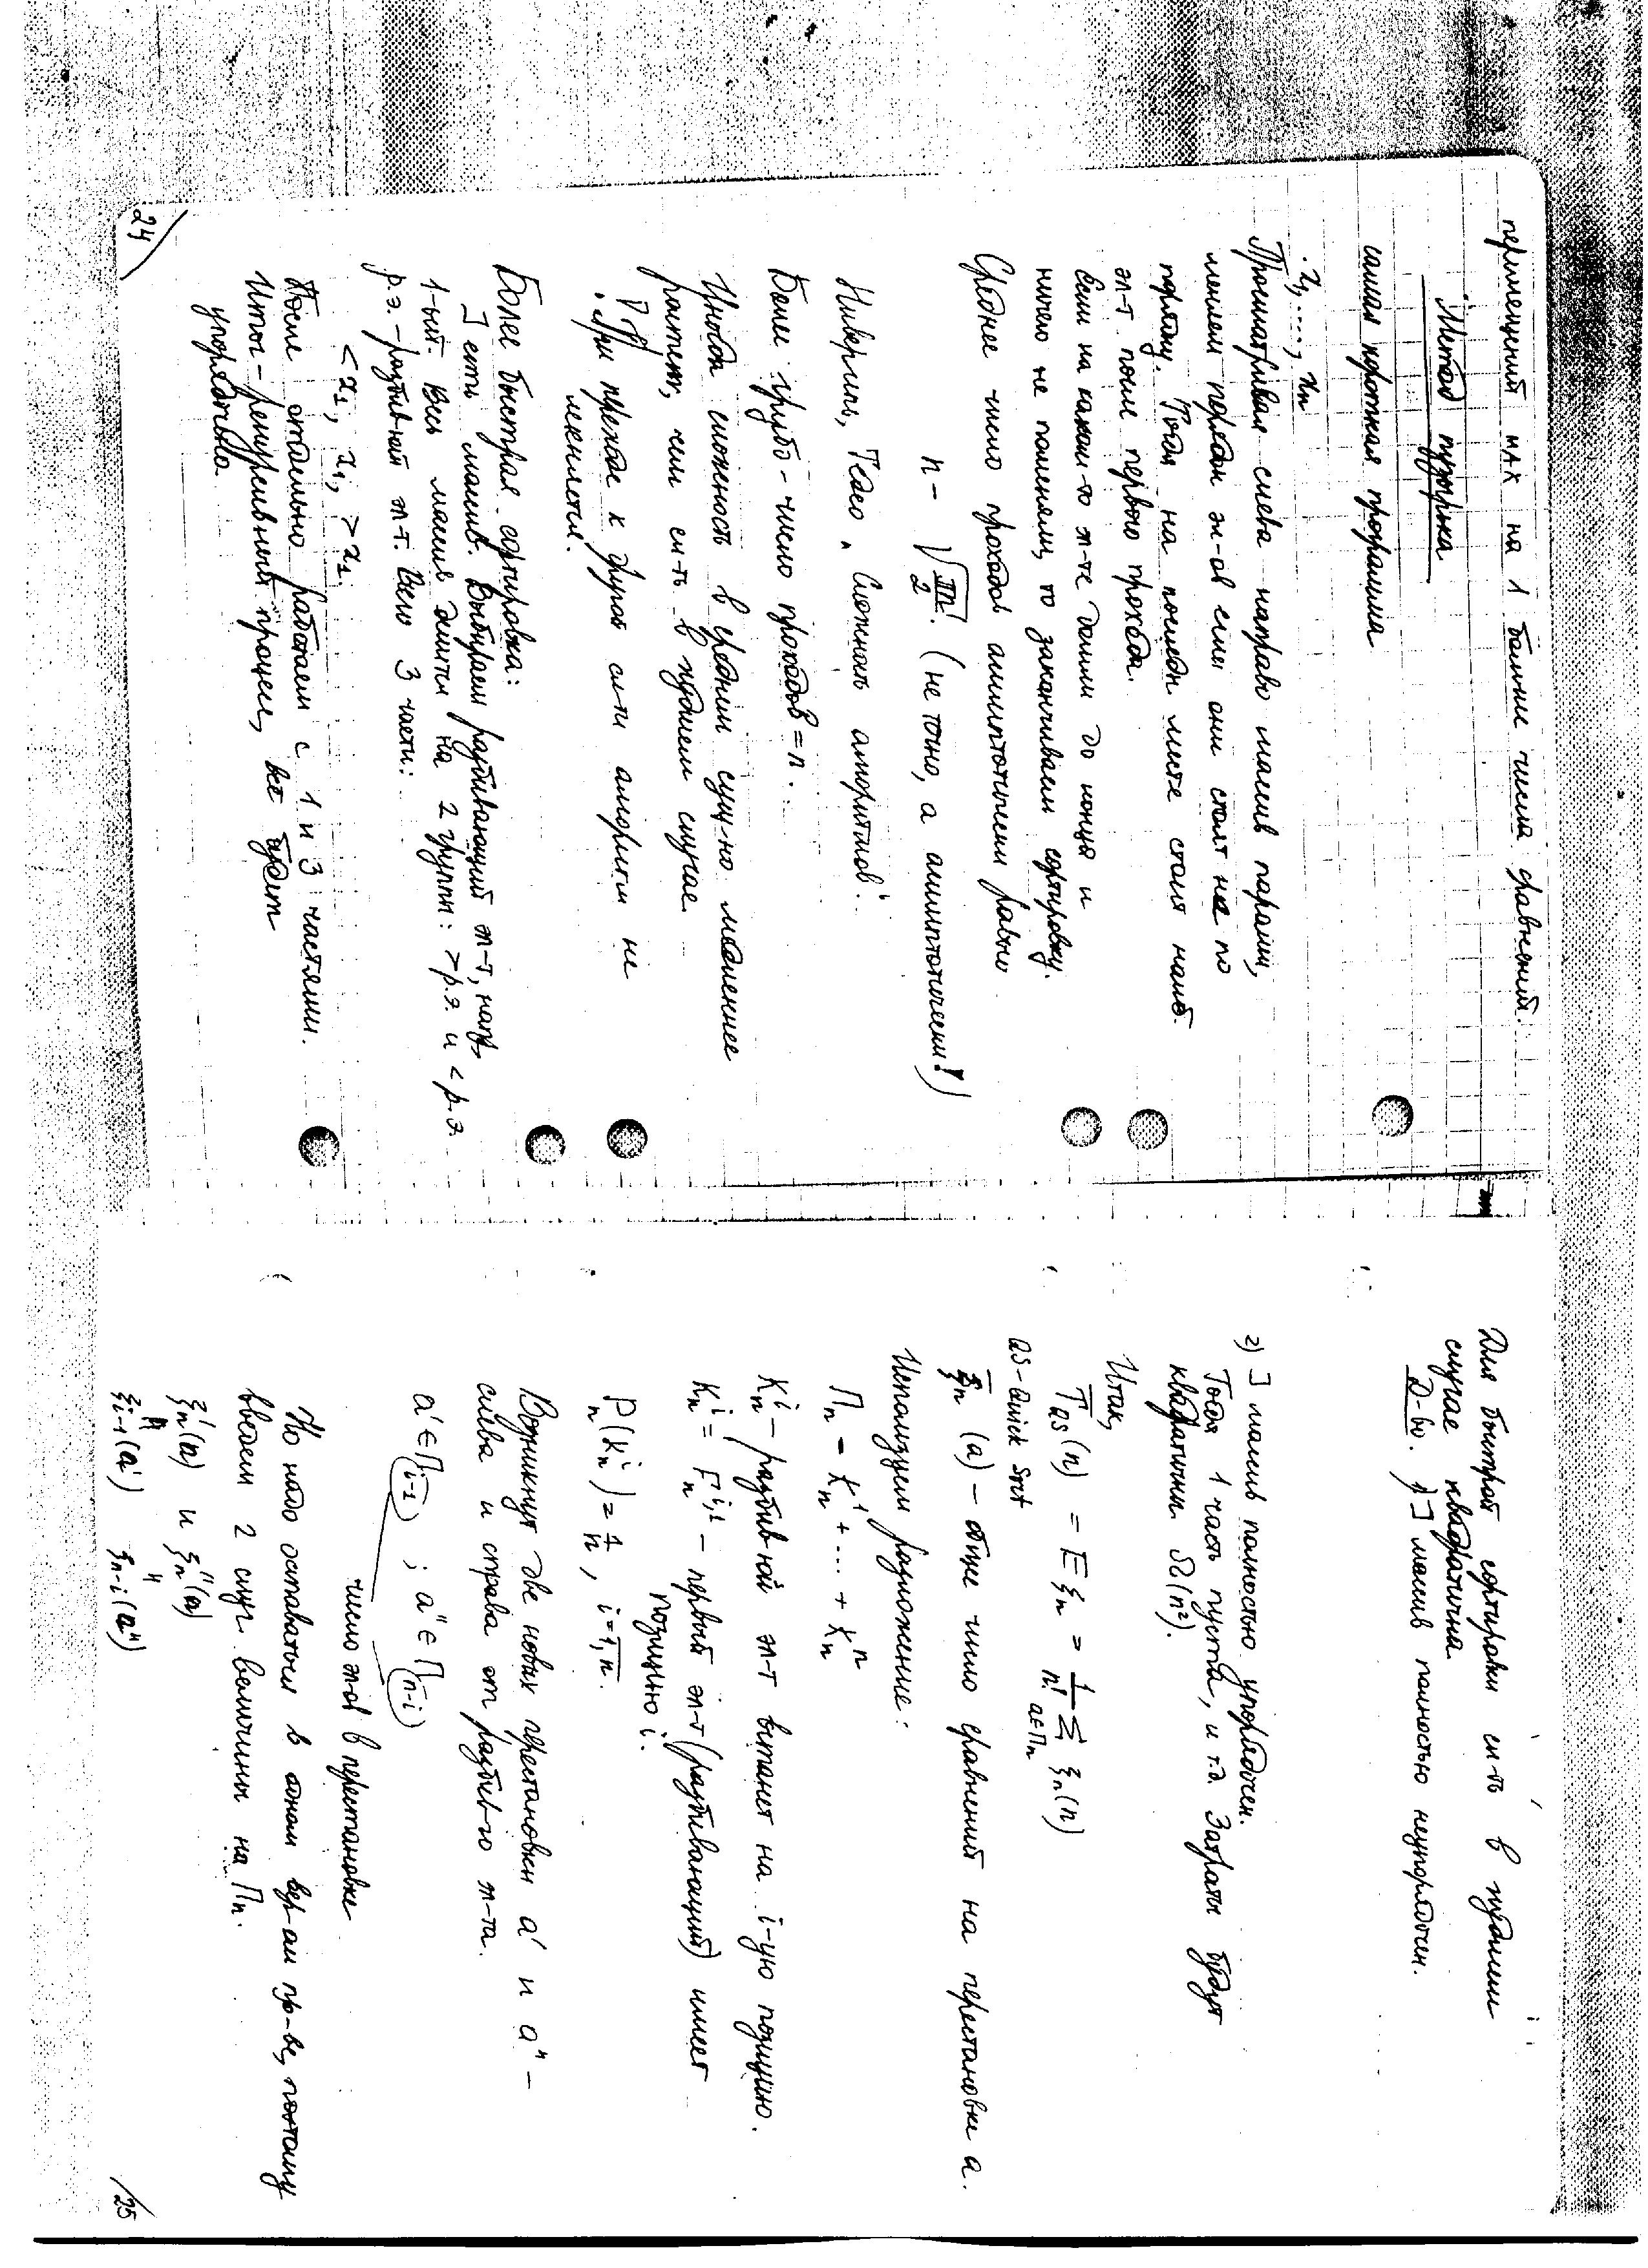 перемещений мах на 1 больше числа сравнений.
Метод пузырька
самая короткая программа
x₁, ...., xₙ
Просматривая слева направо массив парами,
меняем порядок эл-ов если они стоят не по
порядку. Тогда на последн месте стоит наиб.
эл-т. после первого прохода.
Если на каком-то эл-те дошли до конца и
ничего не поменяли, то заканчиваем сортировку.
Среднее число проходов асимптотически равно
n - √(πn/2). (не точно, а асимптотически!)
Сложность алгоритмов
Более грубо - число проходов = n.
Иногда сложность в среднем сущ-но медленнее
растет, чем сл-ть в худшем случае.
При переходе к другой сл-ти алгоритм не
меняются.
Более быстрая сортировка:
] есть массив. Выбираем разбивающий эл-т, напр.
1-ый. Весь массив делится на 2 группы: > р.э. и < р.э.
р.э. - разбивной эл-т. Всего 3 части:
< x₁, x₁, > x₁
После отдельно работаем с 1 и 3 частями.
Итог - рекурсивный процесс, всё будет
упорядочено.
24
Для быстрой сортировки сл-ть в худшем
случае квадратична
Д-во. 1) ] массив полностью неупорядочен.
2) ] массив полностью упорядочен.
Тогда 1 часть пуста, и т.д. Затраты будут
квадратичны Ω(n²).
Итак,
T̅_QS(n) = Eξₙ = 1/n! Σ_{a∈Πₙ} ξₙ(n)
QS - Quick Sort
ξₙ(a) - общее число сравнений на перестановке a.
Используем разложение:
Πₙ = Kₙ¹ + ... + Kₙⁿ
Kₙⁱ - разбивной эл-т встанет на i-ую позицию.
Kₙⁱ = Fₙ^{i,1} - первый эл-т (разбивающий) имеет
позицию i.
Pₙ(Kₙⁱ) = 1/n, i = 1,n.
Возникнут две новых перестановки a' и a'' -
слева и справа от разбив-го эл-та.
a' ∈ Π_{i-1} ; a'' ∈ Π_{n-i}
число эл-ов в перестановке
Но надо оставаться в одном вер-ом пр-ве, поэтому
введем 2 случ величины на Πₙ.
ξₙ'(a) и ξₙ''(a)
ξ_{i-1}(a') ξ_{n-i}(a'')
25